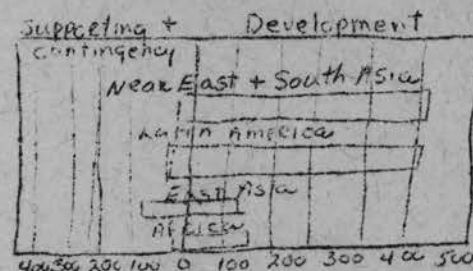 Supporting + Development
contingency
Near East + South Asia
Latin America
East Asia
Africa
400 300 200 100 0 100 200 300 400 500